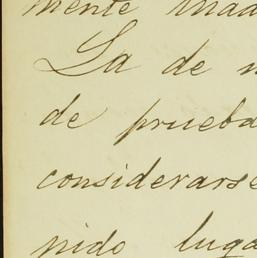 mente
La de
de prueba
considerarse
nido luga